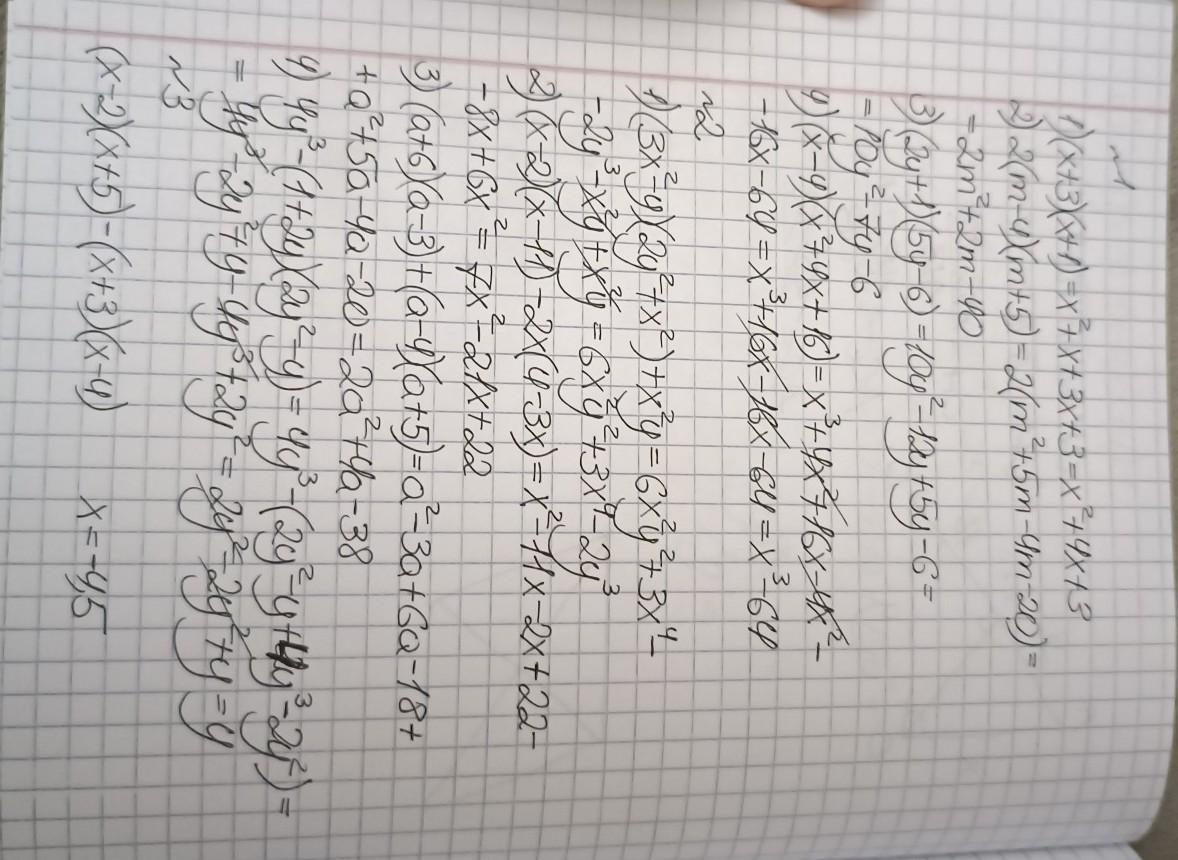 №1
1) (x+3)(x+1) = x²+x+3x+3 = x²+4x+3
2) 2(m-4)(m+5) = 2(m²+5m-4m-20) =
= 2m²+2m-40
3) (2y+1)(5y-6) = 10y²-12y+5y-6 =
= 10y²-7y-6
4) (x-4)(x²+4x+16) = x³+4x²+16x-4x²-
-16x-64 = x³+16x-16x-64 = x³-64
№2
1) (3x²-y)(2y²+x²)+x²y = 6x²y²+3x⁴-
-2y³-x²y+x²y = 6x²y²+3x⁴-2y³
2) (x-2)(x-11)-2x(4-3x) = x²-11x-2x+22-
-8x+6x² = 7x²-21x+22
3) (a+6)(a-3)+(a-4)(a+5) = a²-3a+6a-18+
+a²+5a-4a-20 = 2a²+4a-38
4) 4y³-(1+2y)(2y²-y) = 4y³-(2y²-y+4y³-2y²) =
= 4y³-2y²+y-4y³+2y² = 2y²-2y²+y = y
№3
(x-2)(x+5)-(x+3)(x-4) x = -4,5